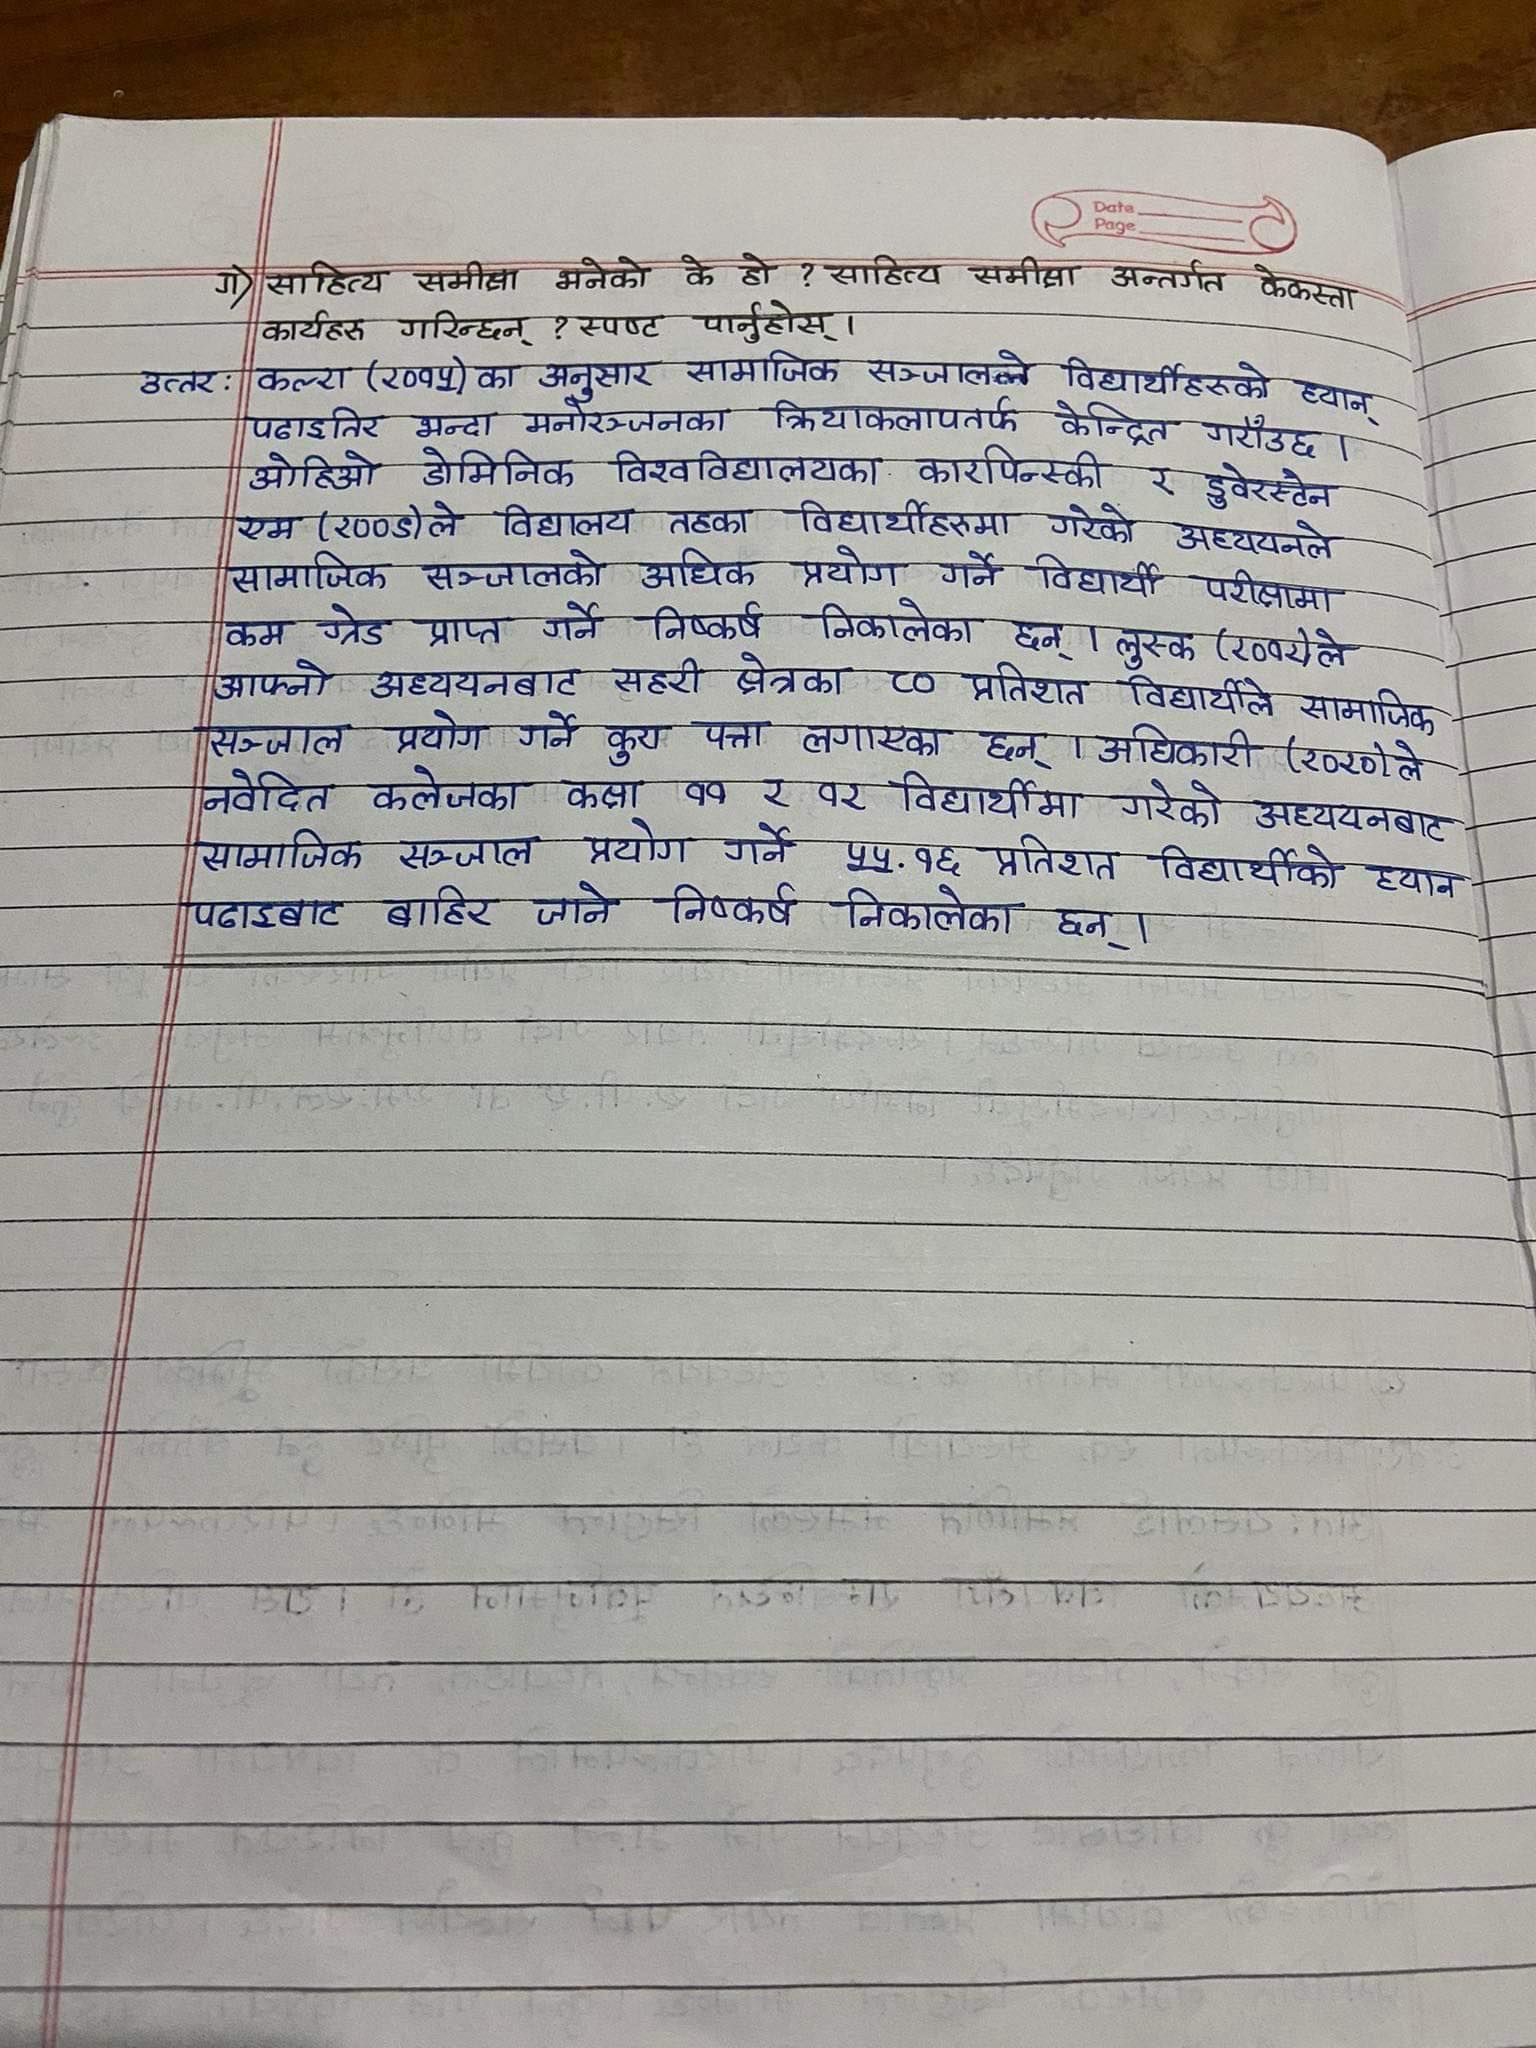 Date
Page
ग) साहित्य समीक्षा भनेको के हो ? साहित्य समीक्षा अन्तर्गत केकस्ता
कार्यहरू गरिन्छन् ? स्पष्ट पार्नुहोस् ।
उत्तर: कल्रा (२०१५) का अनुसार सामाजिक सञ्जालले विद्यार्थीहरूको ध्यान्
पढाइतिर भन्दा मनोरञ्जनका क्रियाकलापतर्फ केन्द्रित गराँउछ ।
ओहिओ डोमिनिक विश्वविद्यालयका कारपिन्स्की र डुवेरस्टेन
एम (२००९)ले विद्यालय तहका विद्यार्थीहरूमा गरेको अध्ययनले
सामाजिक सञ्जालको अधिक प्रयोग गर्ने विद्यार्थी परीक्षामा
कम ग्रेड प्राप्त गर्ने निष्कर्ष निकालेका छन् । लुस्क (२०१२)ले
आफ्नो अध्ययनबाट सहरी क्षेत्रका ८० प्रतिशत विद्यार्थीले सामाजिक
सञ्जाल प्रयोग गर्ने कुरा पत्ता लगाएका छन् । अधिकारी (२०२०)ले
नवेदित कलेजका कक्षा ११ र १२ विद्यार्थीमा गरेको अध्ययनबाट
सामाजिक सञ्जाल प्रयोग गर्ने ५५.१६ प्रतिशत विद्यार्थीको ध्यान
पढाइबाट बाहिर जाने निष्कर्ष निकालेका छन् ।